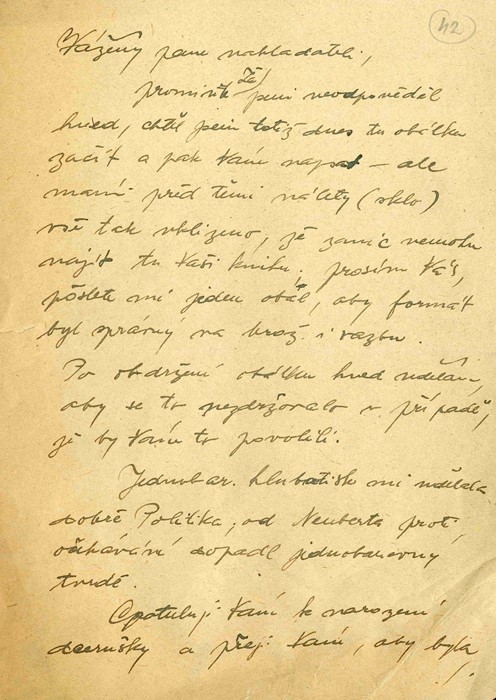 42
Vážený pane nakladateli,
promiňte že jsem neodpověděl
hned, chtěl jsem totiž dnes tu obálku
začít a pak Vám napsat – ale
mám před těmi nálety (sklo)
vše tak uklizeno, že zanic nemohu
najít tu Vaši knihu, prosím Vás,
pošlete mi jeden obál, aby formát
byl správný na brož. i vazbu.
Po obdržení obálku hned udělám,
aby se to nezdržovalo v případě,
že by Vám to povolili.
Jednobar. hlubotisk mi udělala
dobře Politika, od Neuberta proti
očekávání dopadl jednobarevný
tvrdě.
Gratuluji Vám k narození
dcerušky a přeji Vám, aby byla